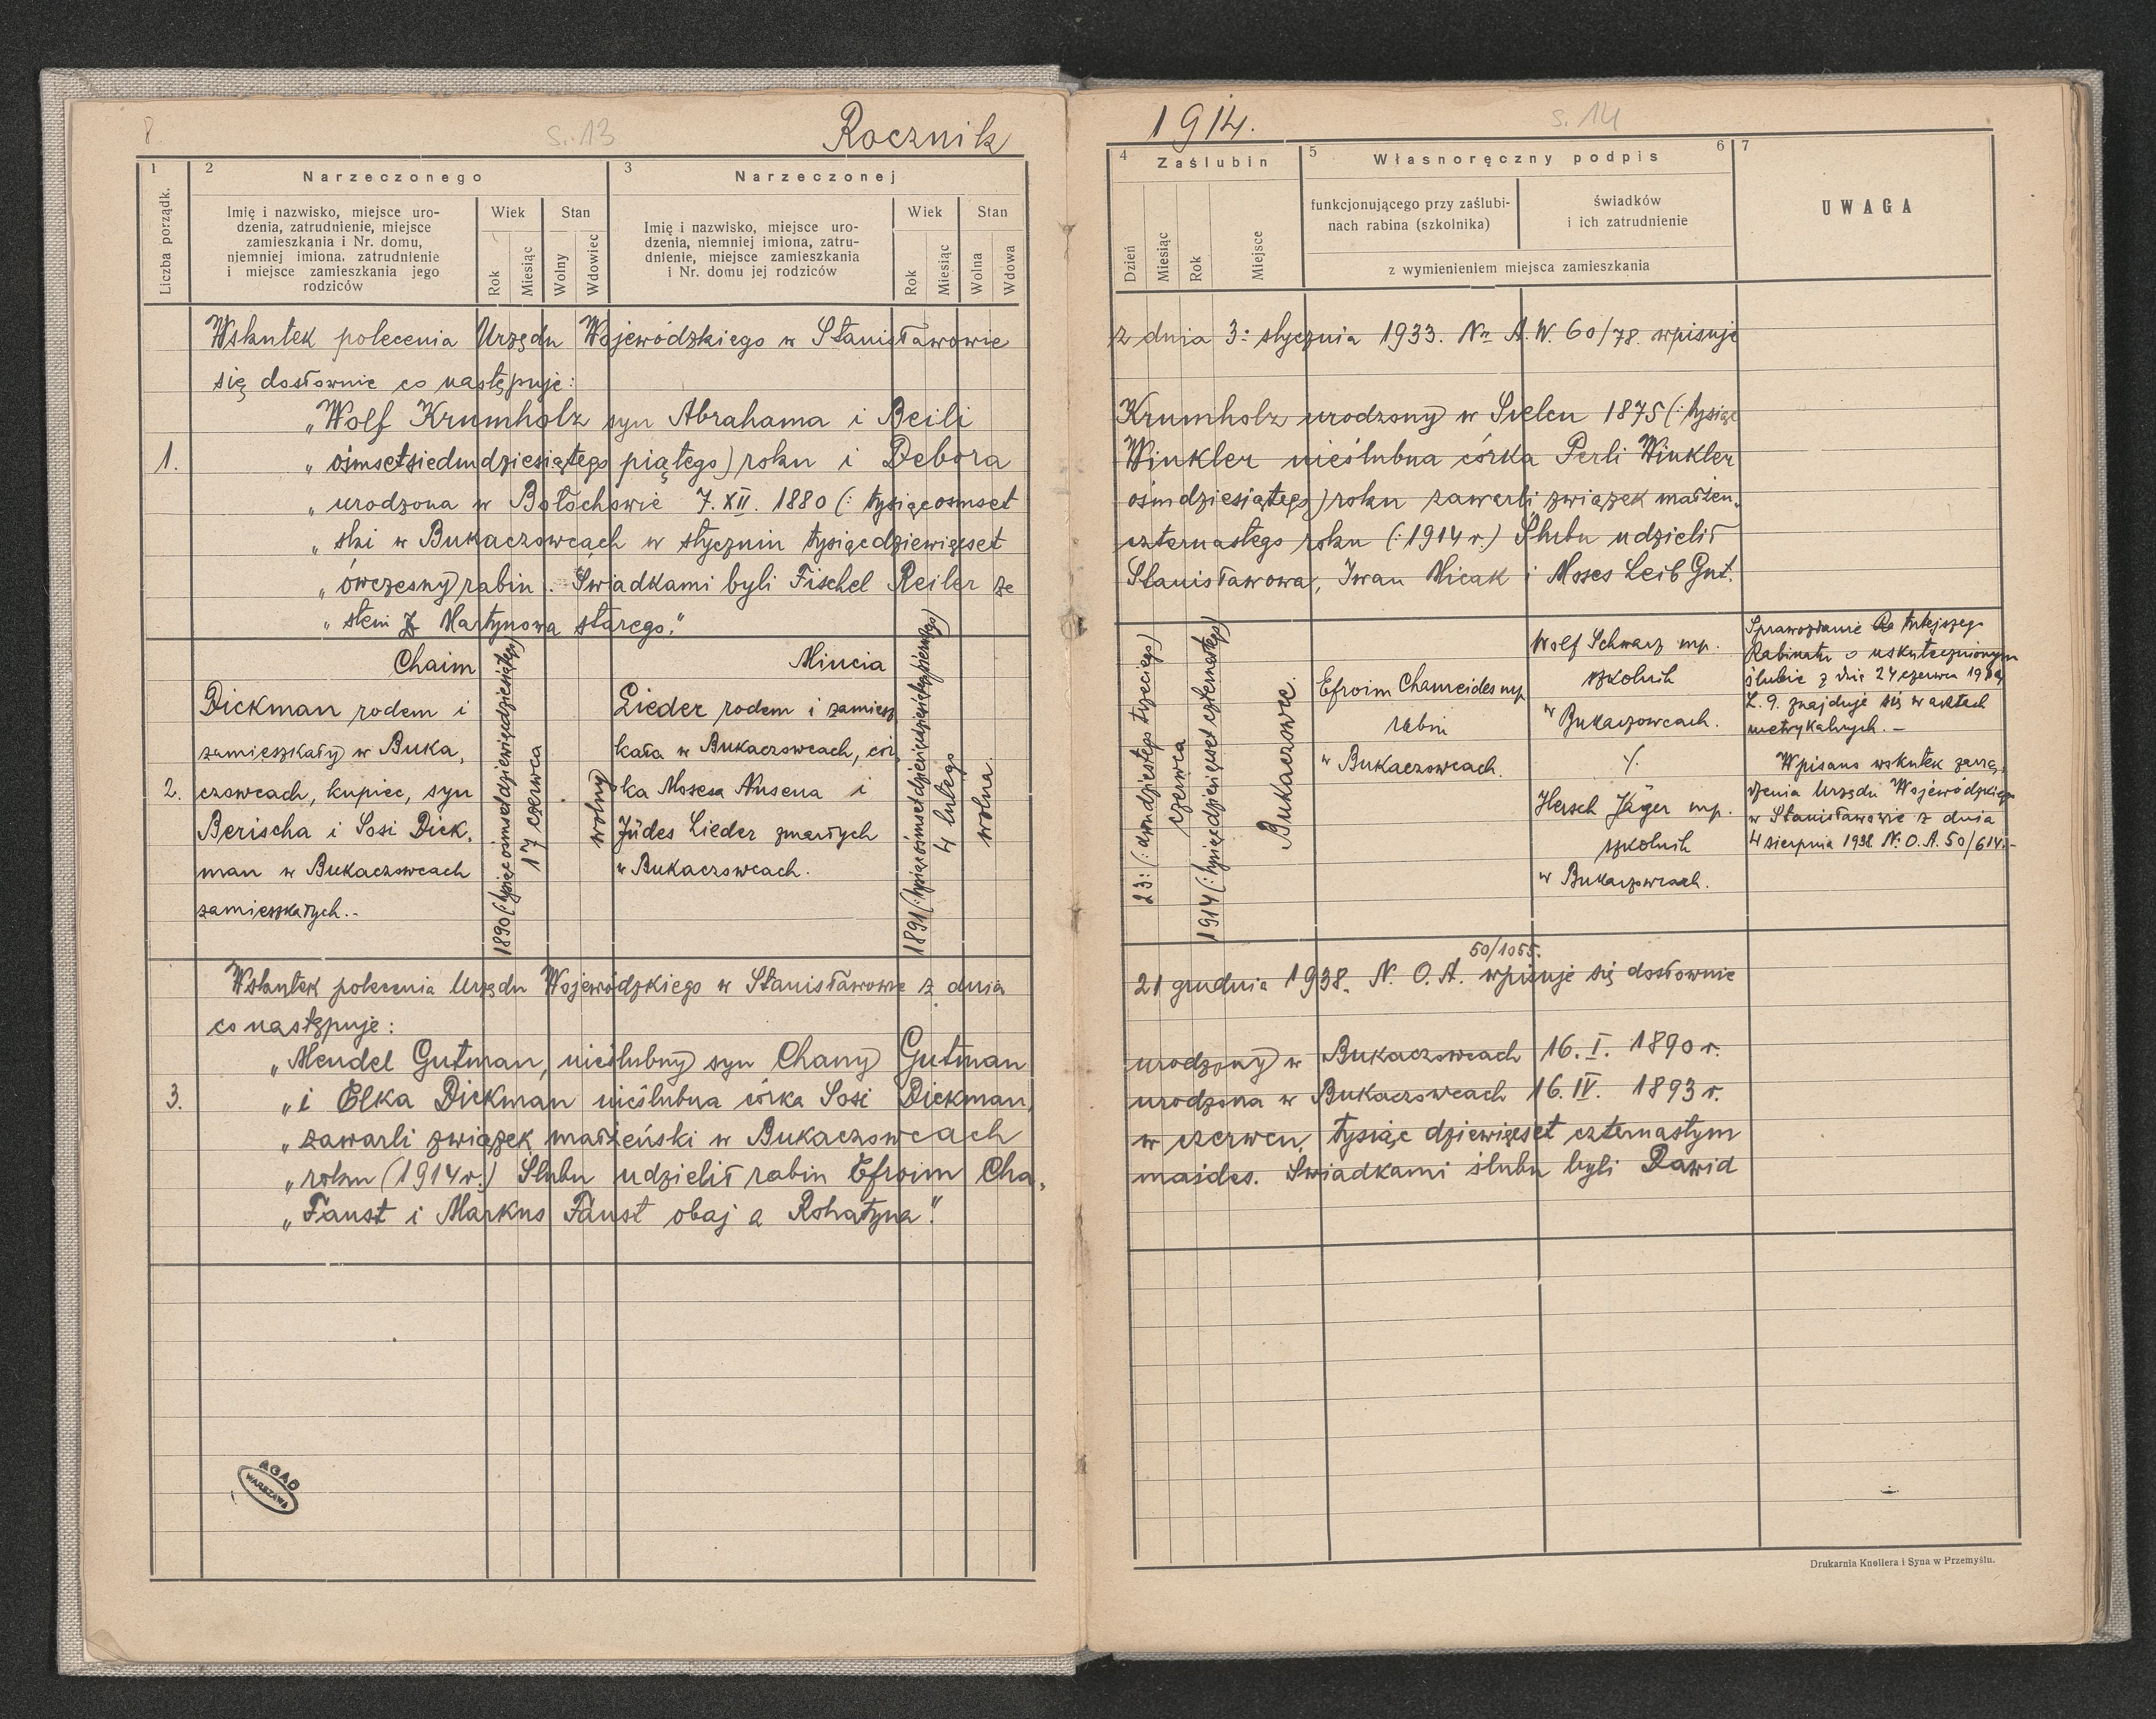 8
s. 13
Rocznik
1
2
Narzeczonego
3
Narzeczonej
Liczba porządk.
Imię i nazwisko, miejsce uro-
dzenia, zatrudnienie, miejsce
zamieszkania i Nr. domu,
niemniej imiona, zatrudnienie
i miejsce zamieszkania jego
rodziców
Wiek
Stan
Rok
Miesiąc
Wolny
Wdowiec
Imię i nazwisko, miejsce uro-
dzenia, niemniej imiona, zatru-
dnienie, miejsce zamieszkania
i Nr. domu jej rodziców
Wiek
Stan
Rok
Miesiąc
Wolna
Wdowa
1914.
s. 14
4
Zaślubin
5
Własnoręczny podpis
6
7
Dzień
Miesiąc
Rok
Miejsce
funkcjonującego przy zaślubi-
nach rabina (szkolnika)
świadków
i ich zatrudnienie
z wymienieniem miejsca zamieszkania
UWAGA
Wskutek polecenia Urzędu Wojewódzkiego w Stanisławowie z dnia 3: stycznia 1933. Nr A.W. 60/78. wpisuje
się dosłownie co następuje:
„Wolf Krumholz syn Abrahama i Beili Krumholz urodzony w Sielcu 1875 (: tysiąc
1.
„ ośmsetsiedmdziesiątego piątego) roku i Debora Winkler nieślubna córka Perli Winkler
„ urodzona w Bołochowie 7. XII. 1880 (: tysiącosmset ośmdziesiątego) roku zawarli związek małżeń-
„ ski w Bukaczowcach w styczniu tysiącdziewięcset czternastego roku (: 1914 r.) Ślubu udzielił
„ ówczesny rabin. Świadkami byli Fischel Reiler ze Stanisławowa, Iwan Micak i Moses Leib Gut.
„ stein z Martynowa starego."
2.
Chaim
Dickman rodem i
zamieszkały w Buka,
czowcach, kupiec, syn
Berischa i Sosi Dick,
man w Bukaczowcach
zamieszkałych.-
1890 (: tysiącośmsetdziewięćdziesiątego)
17 czerwca
wolny
Mincia
Lieder rodem i zamiesz
kała w Bukaczowcach, cór,
ka Mosesa Nusena i
Jüdes Lieder zmarłych
w Bukaczowcach.
1891 (: tysiącośmsetdziewięćdziesiątegopierwszego)
4 lutego
wolna.
23: (: dwudziestego trzeciego)
czerwca
1914 (: tysiącdziewięcset czternastego)
Bukaczowce.
Efroim Chameides mp
rabin
w Bukaczowcach.
Wolf Schwarz mp.
szkolnik
w Bukaczowcach.
Hersch Jäger mp.
szkolnik
w Bukaczowcach.
Sprawozdanie tutejszego
Rabinatu o uskutecznionym
ślubie z dnia 24 czerwca 1914
L. 9. znajduje się w aktach
metrykalnych.-
Wpisano wskutek zarzą,
dzenia Urzędu Wojewódzkiego
w Stanisławowie z dnia
4 sierpnia 1938 N: O.A. 50/614.-
50/1055.
Wskutek polecenia Urzędu Wojewódzkiego w Stanisławowie z dnia 21 grudnia 1938. N. O.A. wpisuje się dosłownie
co następuje:
„Mendel Gutman, nieślubny syn Chany Gutman urodzony w Bukaczowcach 16. I. 1890 r.
3.
„ i Elka Dickman nieślubna córka Sosi Dickman, urodzona w Bukaczowcach 16. IV. 1893 r.
„ zawarli związek małżeński w Bukaczowcach w czerwcu, tysiąc dziewięcset czternastym
„ roku (1914 r.) Ślubu udzielił rabin Efroim Cha, maides. Świadkami ślubu byli Dawid
„ Faust i Markus Faust obaj a Rohatyna."
AGAD
WARSZAWA
Drukarnia Knollera i Syna w Przemyślu.